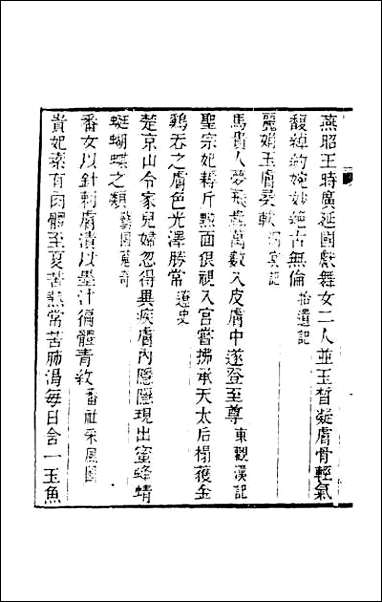 燕昭王時廣延國獻舞女二人並玉皙凝膚骨輕氣
馥綽約婉妙絶古無倫拾遺記
麗娟玉膚柔軟洞冥記
馬貴人夢飛蟲萬數入皮膚中遂登至尊東觀漢記
聖宗妃耨斤黝面很視入宮嘗拂承天太后榻獲金
鷄吞之膚色光澤勝常遼史
楚京山令家兒婦忽得異疾膚內隱隱現出蜜蜂蜻
蜓蝴蝶之類
番女以針刺膚漬以墨汁徧體青紋番社采風圖
貴妃素有肉體至夏苦熱常苦肺渴每日含一玉魚